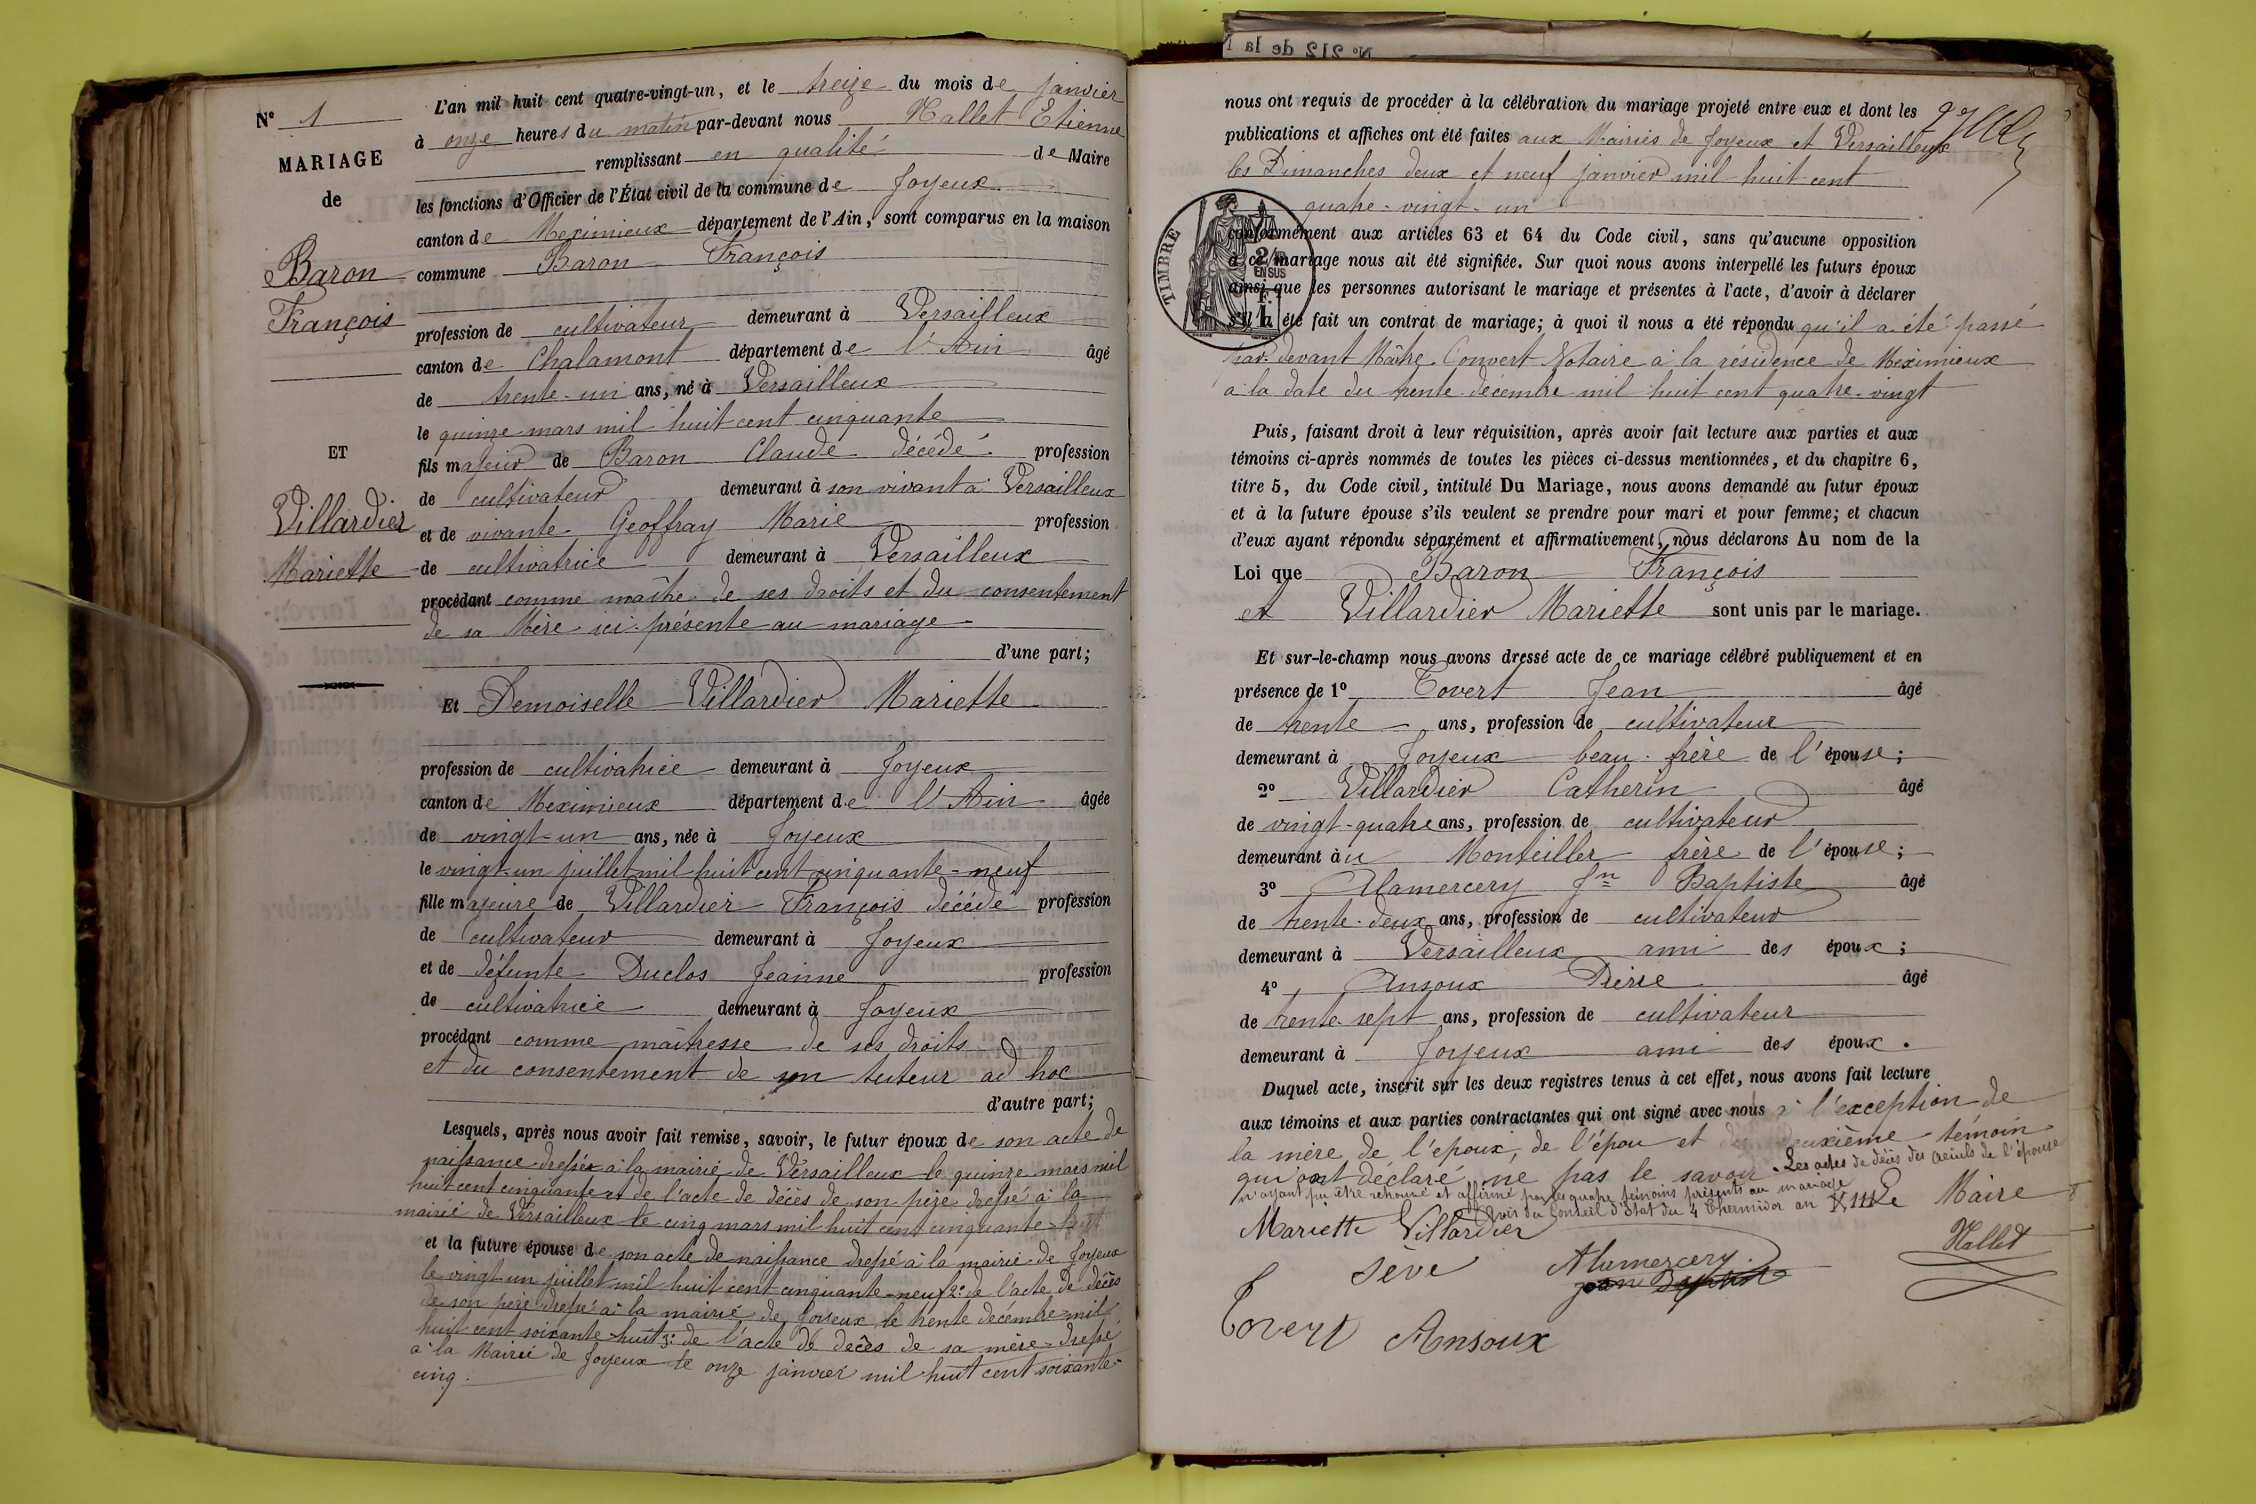 N° 1
MARIAGE
de
Baron
François
ET
Villardier
Mariette
L'an mil huit cent quatre-vingt-un, et le treize du mois de janvier
à onze heures du matin par-devant nous Hallet Etienne
remplissant en qualité de Maire
les fonctions d'Officier de l'État civil de la commune de Joyeux
canton de Meximieux département de l'Ain, sont comparus en la maison
commune Baron François
profession de cultivateur demeurant à Versailleux
canton de Chalamont département de l'Ain âgé
de trente-un ans, né à Versailleux
le quinze mars mil huit cent cinquante
fils majeur de Baron Claude décédé profession
de cultivateur demeurant à son vivant à Versailleux
et de vivante Geoffray Marie profession
de cultivatrice demeurant à Versailleux
procédant comme maître de ses droits et du consentement
de sa Mère ici présente au mariage
d'une part;
Et Demoiselle Villardier Mariette
profession de cultivatrice demeurant à Joyeux
canton de Meximieux département de l'Ain âgée
de vingt-un ans, née à Joyeux
le vingt-un juillet mil huit cent cinquante-neuf
fille majeure de Villardier François décédé profession
de cultivateur demeurant à Joyeux
et de défunte Duclos Jeanne profession
de cultivatrice demeurant à Joyeux
procédant comme maîtresse de ses droits
et du consentement de son tuteur ad hoc
d'autre part;
Lesquels, après nous avoir fait remise, savoir, le futur époux de son acte de
naissance dressé à la mairie de Versailleux le quinze mars mil
huit cent cinquante et de l'acte de décès de son père dressé à la
mairie de Versailleux le cinq mars mil huit cent cinquante-huit
et la future épouse de son acte de naissance dressé à la mairie de Joyeux
le vingt-un juillet mil huit cent cinquante-neuf 2° de l'acte de décès
de son père dressé à la mairie de Joyeux le trente décembre mil
huit cent soixante-huit 3° de l'acte de décès de sa mère dressé
à la Mairie de Joyeux le onze janvier mil huit cent soixante-
cinq.
N° 212 de la
nous ont requis de procéder à la célébration du mariage projeté entre eux et dont les
publications et affiches ont été faites aux Mairies de Joyeux et Versailleux
les Dimanches deux et neuf janvier mil huit cent
quatre-vingt-un
TIMBRE
2/10
EN SUS
F.
1
conformément aux articles 63 et 64 du Code civil, sans qu'aucune opposition
à ce mariage nous ait été signifiée. Sur quoi nous avons interpellé les futurs époux
ainsi que les personnes autorisant le mariage et présentes à l'acte, d'avoir à déclarer
s'il a été fait un contrat de mariage; à quoi il nous a été répondu qu'il a été passé
par-devant Maître Convert Notaire à la résidence de Meximieux
à la date du trente décembre mil huit cent quatre-vingt
Puis, faisant droit à leur réquisition, après avoir fait lecture aux parties et aux
témoins ci-après nommés de toutes les pièces ci-dessus mentionnées, et du chapitre 6,
titre 5, du Code civil, intitulé Du Mariage, nous avons demandé au futur époux
et à la future épouse s'ils veulent se prendre pour mari et pour femme; et chacun
d'eux ayant répondu séparément et affirmativement, nous déclarons Au nom de la
Loi que Baron François
et Villardier Mariette sont unis par le mariage.
Et sur-le-champ nous avons dressé acte de ce mariage célébré publiquement et en
présence de 1° Tovert Jean âgé
de trente ans, profession de cultivateur
demeurant à Joyeux beau-frère de l'épouse;
2° Villardier Catherin âgé
de vingt-quatre ans, profession de cultivateur
demeurant au Montellier frère de l'épouse;
3° Alamercery Jn Baptiste âgé
de trente-deux ans, profession de cultivateur
demeurant à Versailleux ami des époux;
4° Ansoux Pierre âgé
de trente-sept ans, profession de cultivateur
demeurant à Joyeux ami des époux.
Duquel acte, inscrit sur les deux registres tenus à cet effet, nous avons fait lecture
aux témoins et aux parties contractantes qui ont signé avec nous à l'exception de
la mère de l'époux, de l'époux et du deuxième témoin
qui ont déclaré ne pas le savoir. Les actes de décès des aïeuls de l'épouse
n'ayant pu être retrouvé et affirmé par les quatre témoins présents au mariage
avis du Conseil d'Etat du 4 Thermidor an XIII
Le Maire
Mariette Villardier
Hallet
Sève
Alamercery
jean Baptiste
Tovert
Ansoux